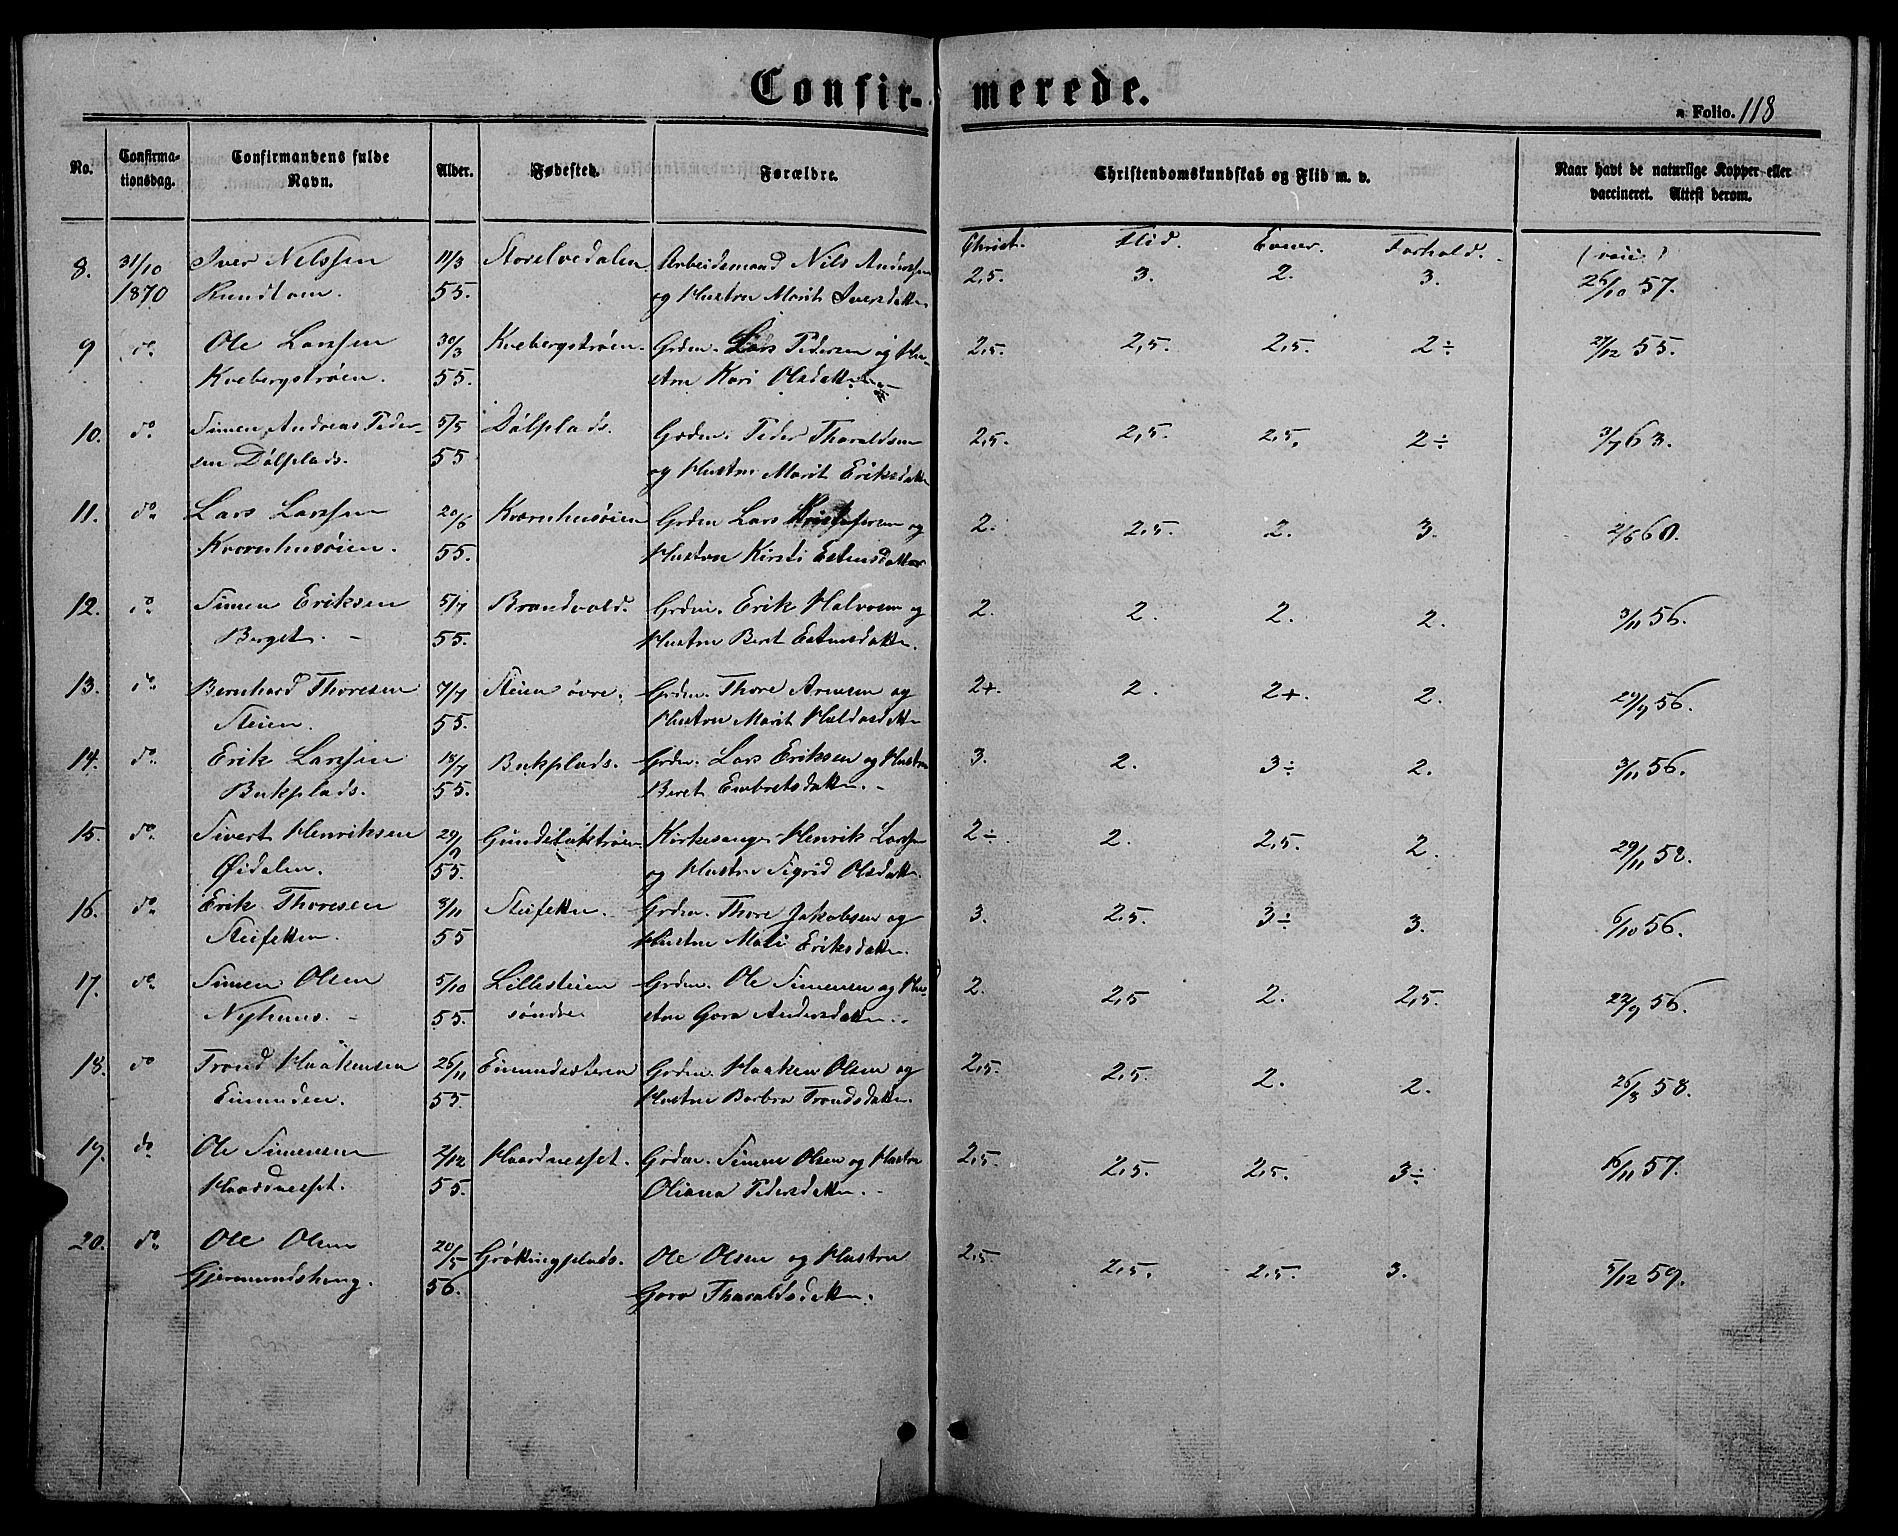 Confirmerede.
a Folio. 118
No. Confirmationsdag. Confirmandens fulde Navn. Alder. Fødested. Forældre. Christendomskundskab og Flid m. v. Naar havt de naturlige Kopper eller vaccineret. Attest derom.
Christ. Flid. Evner. Forhold. (vacc.)
8. 31/10 Iver Nilssen 11/3 Storelvedalen. Arbeidsmand Nils Anderssen 2,5. 3. 2. 3. 26/10 57.
1870 55. og Hustru Marit Iversdatter
9 do Ole Larssen 30/3 Kvebergstrøen. Grdm. Lars Pedersen og Hu- 2,5. 2,5. 2,5. 2÷ 27/12 55.
Kvebergstrøen. 55. stru Kari Olsdatter
10. do Simen Andreas Peder- 5/5 Dølplads. Grdm. Peder Tharaldsen 2,5. 2,5. 2,5. 2÷ 3/7 63.
sen Dølplads. 55 og Hustru Marit Eriksdatter
11. do Lars Larssen 20/6 Kværnhusøien Grdm Lars Kristofersen og 2. 2,5. 2. 3. 2/6 60.
Kværnhusøien. 55. Hustru Kirsti Estensdatter
12. do Simen Eriksen 5/7 Brandvold. Grdm. Erik Halvorsen og 2. 2. 2. 2. 3/11 56.
Berget. - 55. Hustru Beret Estensdatter.
13. do Bernhard Thoresen 7/7 Steien øvre. Grdm. Thore Arnesen og 2+. 2. 2+. 2. 29/9 56.
Steien. 55. Hustru Marit Haldosdatter
14. do Erik Larssen 18/7 Bukplads. Grdm. Lars Eriksen og Hustru 3. 2. 3÷ 2. 3/11 56.
Bukplads. 55. Beret Embretsdatter. -
15. do Sivert Henriksen 29/9 Gundeluktrøen. Kirkesanger Henrik Larssen 2÷ 2. 2,5. 2. 29/11 58.
Øidalen. 55. og Hustru Sigrid Olsdatter.
16. do Erik Thoresen 3/11 Steifetten. Grdm. Thore Jakobsen og 3. 2,5. 3÷ 3. 6/10 56.
Steifetten. 55 Hustru Mali Eriksdatter.
17. do Simen Olsen 5/10 Lillesteien Grdm. Ole Simensen og Hu- 2. 2,5 2. 2,5. 22/9 56.
Nyhuus. - 55. søndre stru Goro Andersdatter.
18. do Trond Haakensen 26/11 Einundsæteren Grdm. Haaken Olsen og 2,5. 2,5. 2. 2. 26/8 58.
Einunden. 55. Hustru Barbro Trondsdatter.
19. do Ole Simensen 2/12 Haardnesset. Grdm. Simen Olsen og Hustru 2,5. 2,5. 2,5. 3÷ 16/11 57.
Haardnesset. 55. Oliana Pedersdatter. -
20. do Ole Olsen 20/5 Grøttingplads. Ole Olsen og Hustru 2,5. 2,5. 2,5. 3. 5/12 59.
Gjermundshaug. 56. Goro Tharaldsdatter.